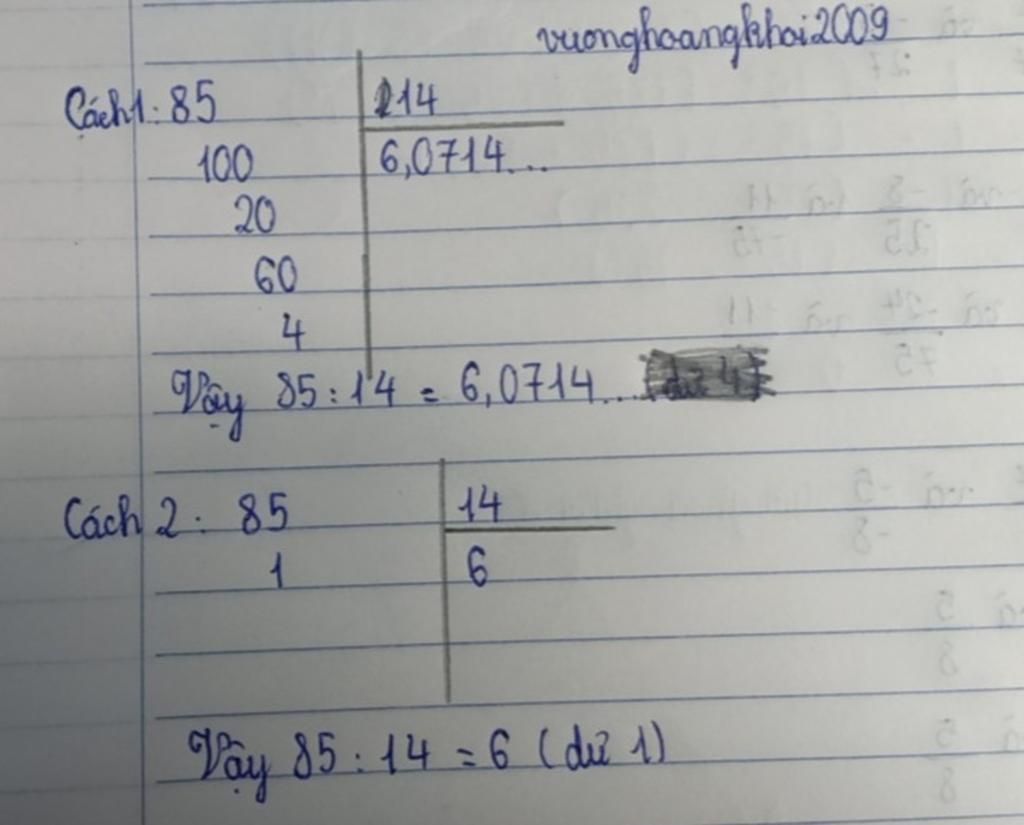 vuonghoangkhai2009
Cách 1: 85 14
100 6,0714...
20
60
4
Vậy 85 : 14 = 6,0714...
Cách 2: 85 14
1 6
Vậy 85 : 14 = 6 (dư 1)